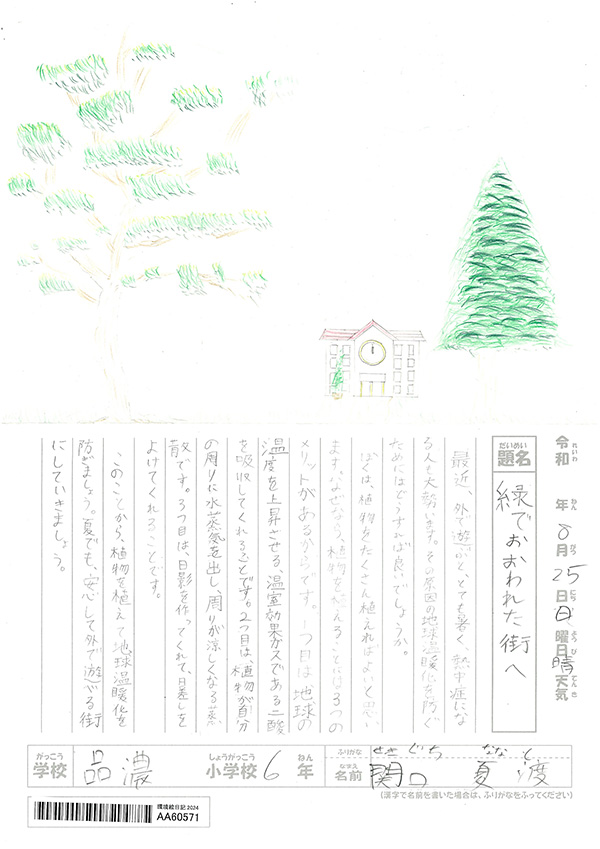 令和 れいわ 年 ねん 8月 がつ 25日 にち 日曜日 ようび 晴 天気 てんき
だいめい
題名 緑でおおわれた街へ
最近、外で遊ぶと、とても暑く、熱中症にな
る人も大勢います。その原因の地球温暖化を防ぐ
ためにはどうすれば良いでしょうか。
ぼくは、植物をたくさん植えればよいと思い
ます。なぜなら、植物を植えることには3つの
メリットがあるからです。1つ目は地球の
温度を上昇させる、温室効果ガスである二酸
を吸収してくれることです。2つ目は、植物が自分
の周りに水蒸気を出し、周りが涼しくなる蒸
散です。3つ目は、日影を作ってくれて、日差しを
よけてくれることです。
このことから、植物を植えて地球温暖化を
防ぎましょう。夏でも、安心して外で遊べる街
にしていきましょう。
がっこう しょうがっこう ねん ふりがな せきぐち ななと
学校 品濃 小学校 6年 なまえ 名前 関口 夏渡
(漢字で名前を書いた場合は、ふりがなをふってください)
環境絵日記 2024
AA60571